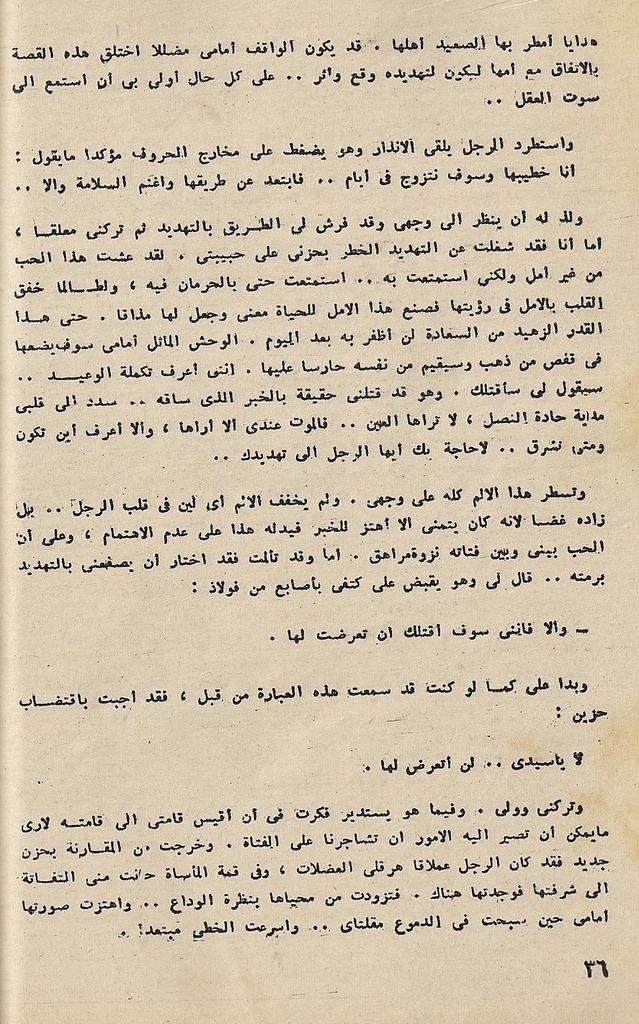 هدايا أمطر بها الصعيد أهلها . قد يكون الواقف أمامى مضللا اختلق هذه القصة
بالاتفاق مع أمها ليكون لتهديده وقع وأثر .. على كل حال أولى بى أن استمع الى
صوت العقل ..
واستطرد الرجل يلقى الانذار وهو يضغط على مخارج الحروف مؤكدا مايقول :
أنا خطيبها وسوف نتزوج فى أيام .. فابتعد عن طريقها واغنم السلامة والا ..
ولذ له أن ينظر الى وجهى وقد فرش لى الطريق بالتهديد ثم تركنى معلقا ،
أما أنا فقد شغلت عن التهديد الخطر بحزنى على حبيبتى . لقد عشت هذا الحب
من غير أمل ولكنى استمتعت به .. استمتعت حتى بالحرمان فيه ، ولطالما خفق
القلب بالامل فى رؤيتها فصنع هذا الامل للحياة معنى وجعل لها مذاقا . حتى هذا
القدر الزهيد من السعادة لن أظفر به بعد اليوم . الوحش الماثل أمامى سوف يضعها
فى قفص من ذهب وسيقيم من نفسه حارسا عليها . اننى أعرف تكملة الوعيد ..
سيقول لى سأقتلك . وهو قد قتلنى حقيقة بالخبر الذى ساقه .. سدد الى قلبى
مدية حادة النصل ، لا تراها العين .. فالموت عندى ألا أراها ، وألا أعرف أين تكون
ومتى تشرق .. لاحاجة بك أيها الرجل الى تهديدك ..
وتسطر هذا الالم كله على وجهى . ولم يخفف الالم أى لين فى قلب الرجل .. بل
زاده غضبا لانه كان يتمنى ألا أهتز للخبر فيدله هذا على عدم الاهتمام ، وعلى أن
الحب بينى وبين فتاته نزوةمراهق . أما وقد تألمت فقد اختار أن يصفعنى بالتهديد
برمته .. قال لى وهو يقبض على كتفى بأصابع من فولاذ :
ـ والا فاننى سوف أقتلك ان تعرضت لها .
وبدا على كما لو كنت قد سمعت هذه العبارة من قبل ، فقد أجبت باقتضاب
حزين :
لا ياسيدى .. لن أتعرض لها .
وتركنى وولى . وفيما هو يستدير فكرت فى أن أقيس قامتى الى قامته لارى
مايمكن أن تصير اليه الامور ان تشاجرنا على الفتاة . وخرجت من المقارنة بحزن
جديد فقد كان الرجل عملاقا هرقلى العضلات ، وفى قمة المأساة حانت منى التفاتة
الى شرفتها فوجدتها هناك . فتزودت من محياها بنظرة الوداع .. واهتزت صورتها
أمامى حين سبحت فى الدموع مقلتاى .. وأسرعت الخطى مبتعدا .
٣٦